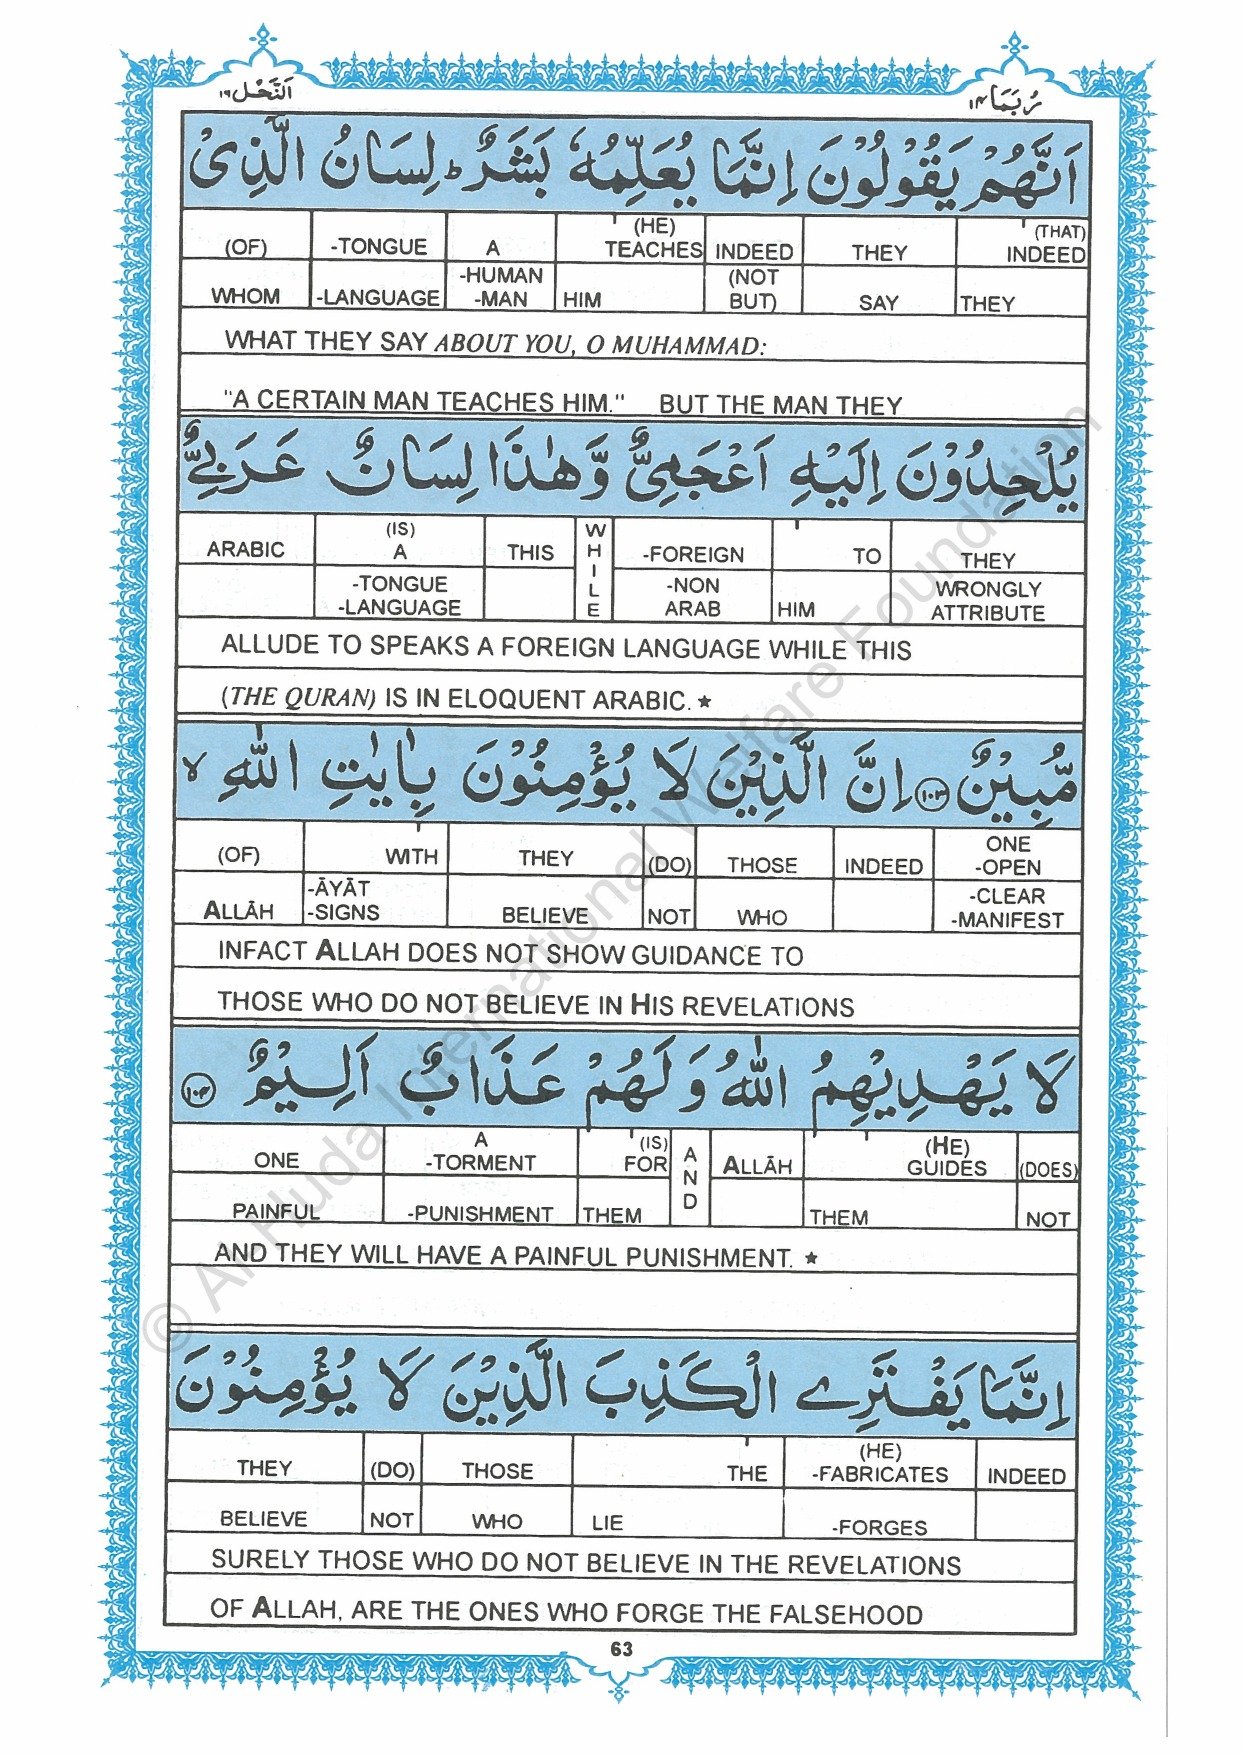 اَلنَّحْل ١٦
رُبَمَا ١٤
اَنَّهُمْ يَقُوْلُوْنَ اِنَّمَا يُعَلِّمُهٗ بَشَرٌ ؕ لِسَانُ الَّذِىْ
(OF) -TONGUE A (HE) TEACHES INDEED THEY (THAT) INDEED
WHOM -LANGUAGE -HUMAN -MAN HIM (NOT BUT) SAY THEY
WHAT THEY SAY ABOUT YOU, O MUHAMMAD:
"A CERTAIN MAN TEACHES HIM." BUT THE MAN THEY
يُلْحِدُوْنَ اِلَيْهِ اَعْجَمِىٌّ وَّهٰذَا لِسَانٌ عَرَبِىٌّ
ARABIC (IS) A THIS WHILE -FOREIGN TO THEY
-TONGUE -LANGUAGE -NON ARAB HIM WRONGLY ATTRIBUTE
ALLUDE TO SPEAKS A FOREIGN LANGUAGE WHILE THIS
(THE QURAN) IS IN ELOQUENT ARABIC. ★
مُّبِيْنٌ ١٠٣ اِنَّ الَّذِيْنَ لَا يُؤْمِنُوْنَ بِاٰيٰتِ اللّٰهِ ۙ
(OF) WITH THEY (DO) THOSE INDEED ONE -OPEN
ALLĀH -ĀYĀT -SIGNS BELIEVE NOT WHO -CLEAR -MANIFEST
INFACT ALLAH DOES NOT SHOW GUIDANCE TO
THOSE WHO DO NOT BELIEVE IN HIS REVELATIONS
لَا يَهْدِيْهِمُ اللّٰهُ وَلَهُمْ عَذَابٌ اَلِيْمٌ ١٠٤
ONE A -TORMENT (IS) FOR AND ALLĀH (HE) GUIDES (DOES)
PAINFUL -PUNISHMENT THEM THEM NOT
AND THEY WILL HAVE A PAINFUL PUNISHMENT. ★
اِنَّمَا يَفْتَرِى الْكَذِبَ الَّذِيْنَ لَا يُؤْمِنُوْنَ
THEY (DO) THOSE THE (HE) -FABRICATES INDEED
BELIEVE NOT WHO LIE -FORGES
SURELY THOSE WHO DO NOT BELIEVE IN THE REVELATIONS
OF ALLAH, ARE THE ONES WHO FORGE THE FALSEHOOD
63
© Al Huda International Welfare Foundation